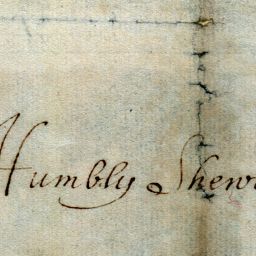 Humbly Shew